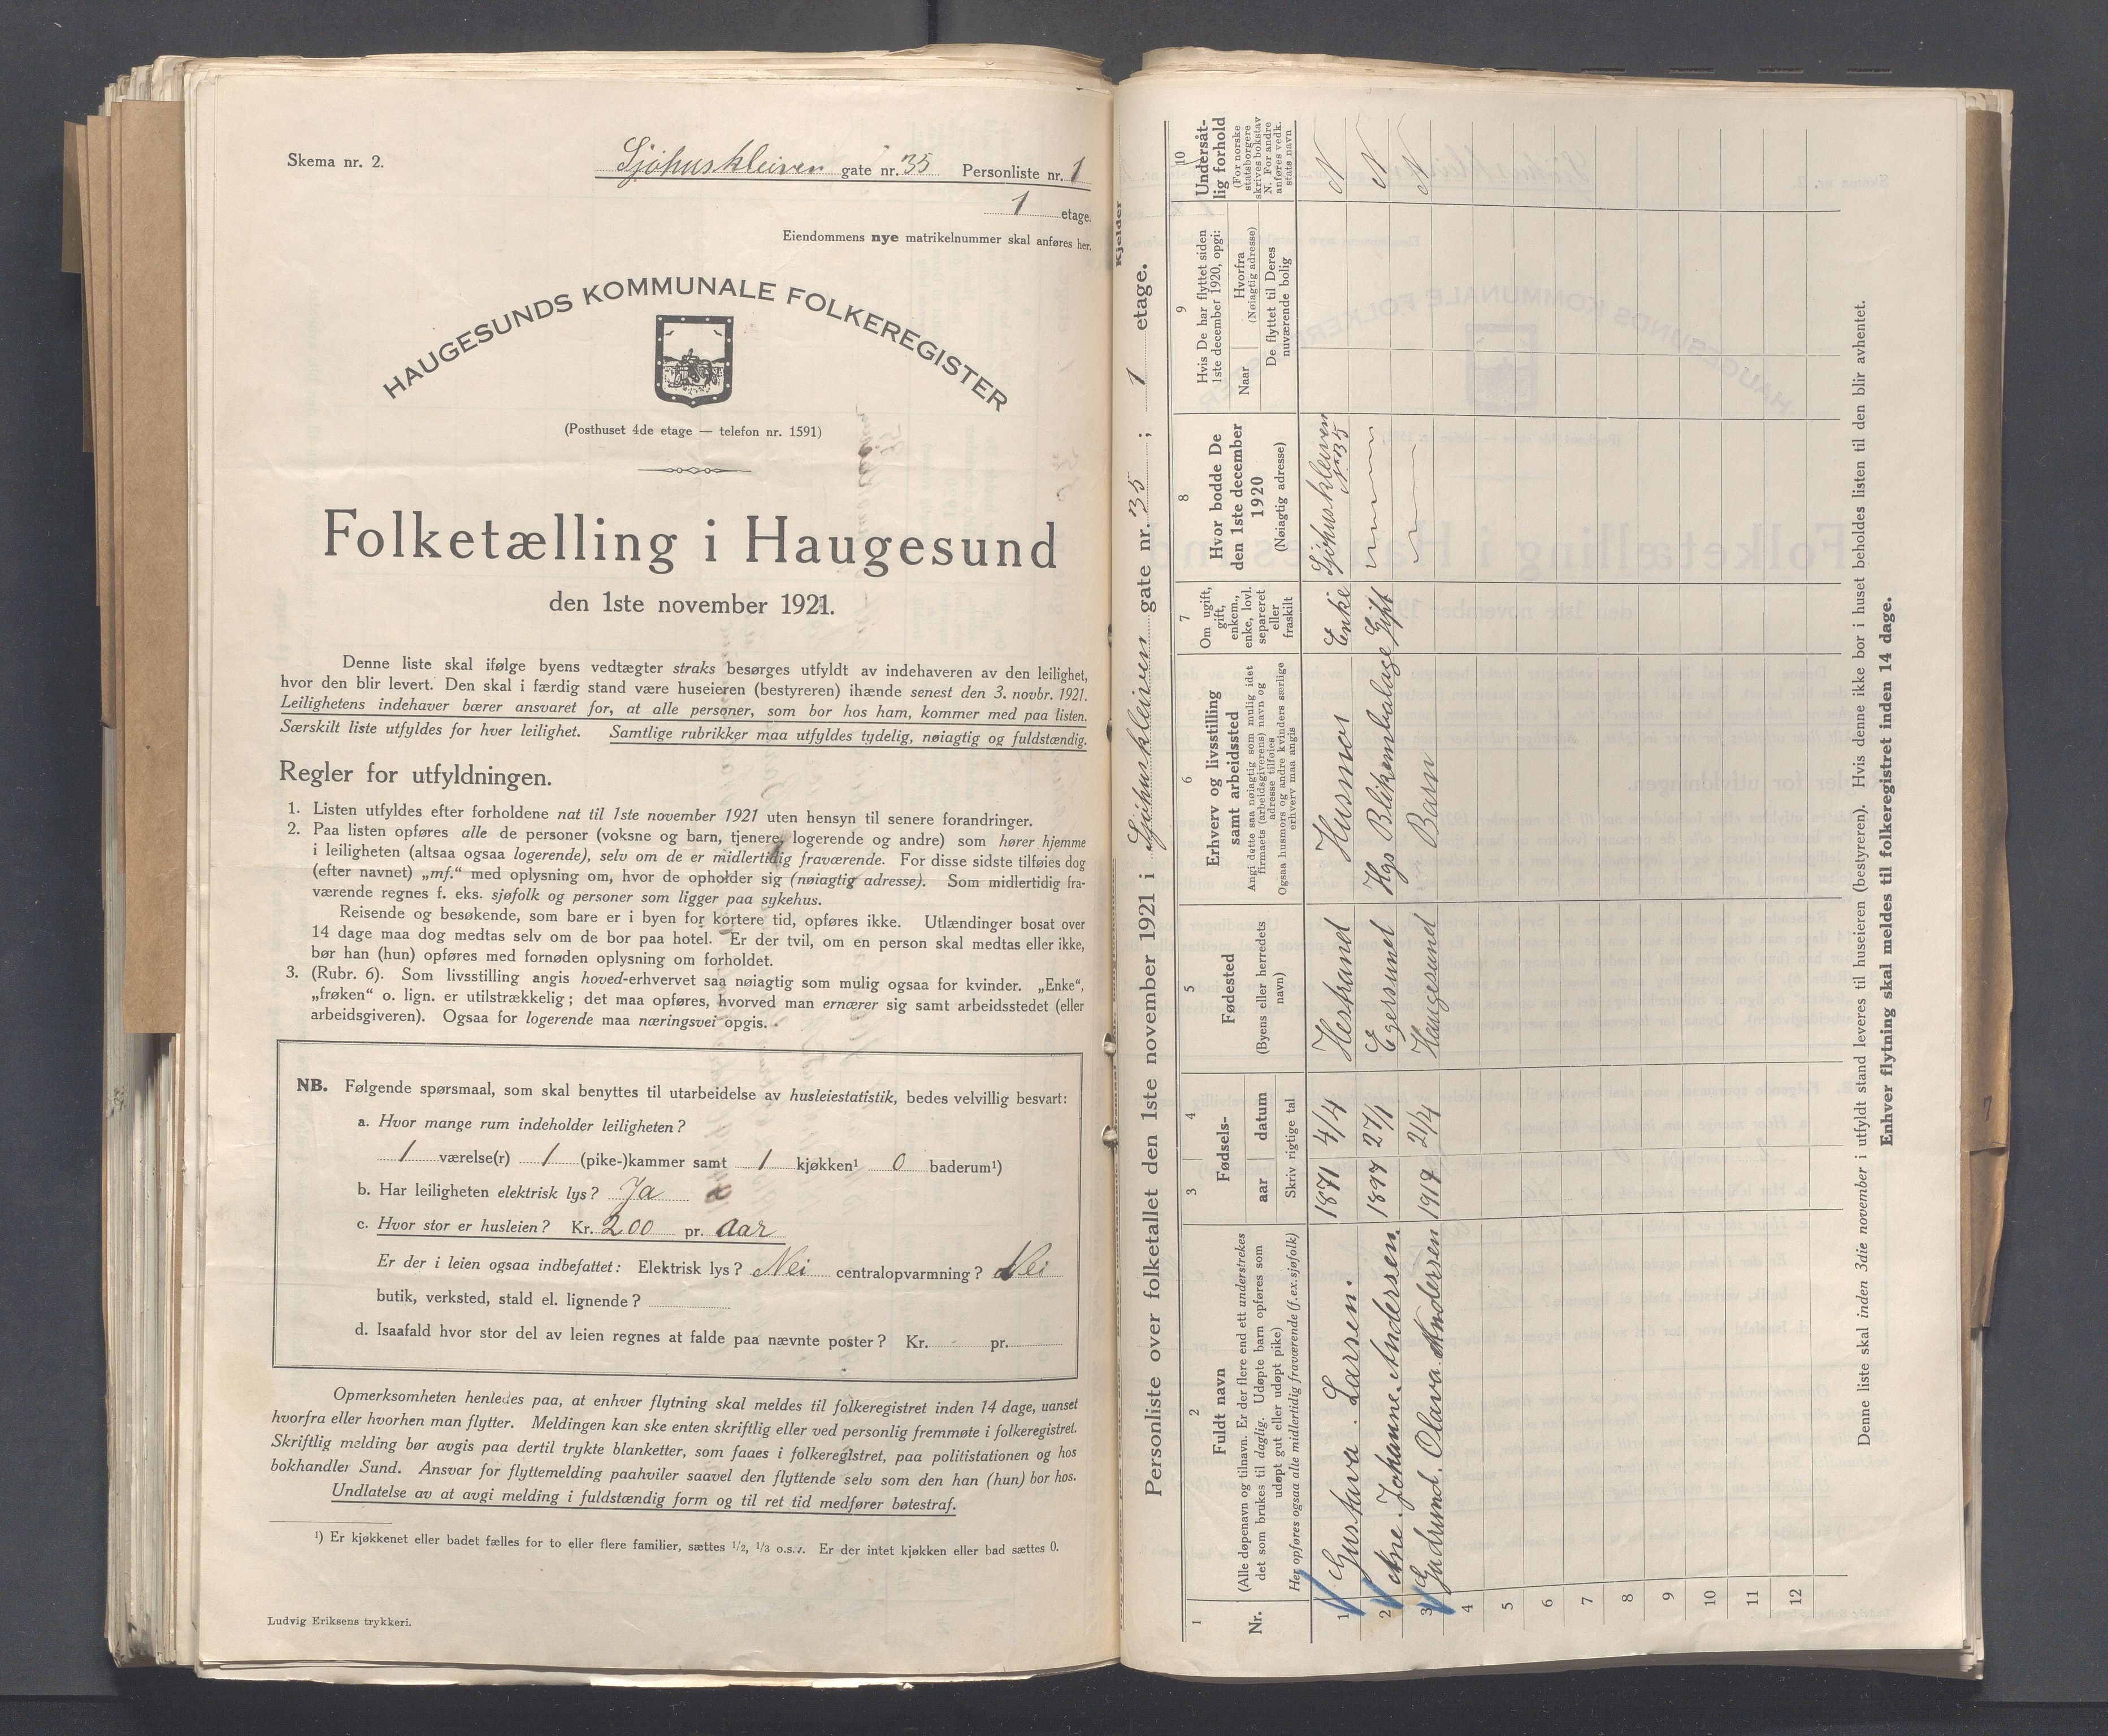 Skema nr. 2.
Sjøhuskleiven gate nr. 35 Personliste nr. 1
1 etage.
Eiendommens nye matrikelnummer skal anføres her.
HAUGESUNDS KOMMUNALE FOLKEREGISTER
(Posthuset 4de etage — telefon nr. 1591)
Folketælling i Haugesund
den 1ste november 1921.
Denne liste skal ifølge byens vedtægter straks besørges utfyldt av indehaveren av den leilighet,
hvor den blir levert. Den skal i færdig stand være huseieren (bestyreren) ihænde senest den 3. novbr. 1921.
Leilighetens indehaver bærer ansvaret for, at alle personer, som bor hos ham, kommer med paa listen.
Særskilt liste utfyldes for hver leilighet. Samtlige rubrikker maa utfyldes tydelig, nøiagtig og fuldstændig.
Regler for utfyldningen.
1. Listen utfyldes efter forholdene nat til 1ste november 1921 uten hensyn til senere forandringer.
2. Paa listen opføres alle de personer (voksne og barn, tjenere, logerende og andre) som hører hjemme
i leiligheten (altsaa ogsaa logerende), selv om de er midlertidig fraværende. For disse sidste tilføies dog
(efter navnet) „mf.“ med oplysning om, hvor de opholder sig (nøiagtig adresse). Som midlertidig fra-
værende regnes f. eks. sjøfolk og personer som ligger paa sykehus.
Reisende og besøkende, som bare er i byen for kortere tid, opføres ikke. Utlændinger bosat over
14 dage maa dog medtas selv om de bor paa hotel. Er der tvil, om en person skal medtas eller ikke,
bør han (hun) opføres med fornøden oplysning om forholdet.
3. (Rubr. 6). Som livsstilling angis hoved-erhvervet saa nøiagtig som mulig ogsaa for kvinder. „Enke“,
„frøken“ o. lign. er utilstrækkelig; det maa opføres, hvorved man ernærer sig samt arbeidsstedet (eller
arbeidsgiveren). Ogsaa for logerende maa næringsvei opgis.
NB. Følgende spørsmaal, som skal benyttes til utarbeidelse av husleiestatistik, bedes velvillig besvart:
a. Hvor mange rum indeholder leiligheten?
1 værelse(r) 1 (pike-)kammer samt 1 kjøkken¹ 0 baderum¹)
b. Har leiligheten elektrisk lys? Ja
c. Hvor stor er husleien? Kr. 200 pr. aar
Er der i leien ogsaa indbefattet: Elektrisk lys? Nei centralopvarmning? Nei
butik, verksted, stald el. lignende?
d. Isaafald hvor stor del av leien regnes at falde paa nævnte poster? Kr. pr.
Opmerksomheten henledes paa, at enhver flytning skal meldes til folkeregistret inden 14 dage, uanset
hvorfra eller hvorhen man flytter. Meldingen kan ske enten skriftlig eller ved personlig fremmøte i folkeregistret.
Skriftlig melding bør avgis paa dertil trykte blanketter, som faaes i folkeregistret, paa politistationen og hos
bokhandler Sund. Ansvar for flyttemelding paahviler saavel den flyttende selv som den han (hun) bor hos.
Undlatelse av at avgi melding i fuldstændig form og til ret tid medfører bøtestraf.
¹) Er kjøkkenet eller badet fælles for to eller flere familier, sættes 1/2, 1/3 o.s.v. Er der intet kjøkken eller bad sættes 0.
Ludvig Eriksens trykkeri.
Kjelder
Personliste over folketallet den 1ste november 1921 i Sjøhuskleiven gate nr. 35 ; 1 etage.
1 2 3 4 5 6 7 8 9 10
Nr.
Fuldt navn
(Alle døpenavn og tilnavn. Er der flere end ett understrekes
det som brukes til daglig. Udøpte barn opføres som
udøpt gut eller udøpt pike)
Her opføres ogsaa alle midlertidig fraværende (f.ex. sjøfolk)
Fødsels-
aar datum
Skriv rigtige tal
Fødested
(Byens eller herredets
navn)
Erhverv og livsstilling
samt arbeidssted
Angi dette saa nøiagtig som mulig idet
firmaets (arbeidsgiverens) navn og
adresse tilføies
Ogsaa husmors og andre kvinders særlige
erhverv maa angis
Om ugift,
gift,
enkem.,
enke, lovl.
separeret
eller
fraskilt
Hvor bodde De
den 1ste december
1920
(Nøiagtig adresse)
Hvis De har flyttet siden
1ste december 1920, opgi:
Naar
Hvorfra
(Nøiagtig adresse)
De flyttet til Deres
nuværende bolig
Undersåt-
lig forhold
(For norske
statsborgere
skrives bokstav
N. For andre
anføres vedk.
stats navn
1 Gustava. Larsen. 1871 4/4 Hestrand Husmor Enke Sjøhuskleiven Nr 35 N
2 Ane. Johanne. Andersen. 1897 27/1 Egersund Hgs Blikemballage Gift N
3 Gudrund. Olava. Andersen 1917 21/4 Haugesund Barn N
4
5
6
7
8
9
10
11
12
Denne liste skal inden 3die november i utfyldt stand leveres til huseieren (bestyreren). Hvis denne ikke bor i huset beholdes listen til den blir avhentet.
Enhver flytning skal meldes til folkeregistret inden 14 dage.